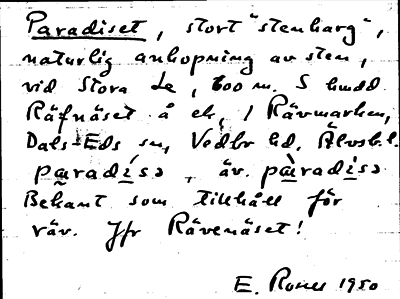 Paradiset, stort "stenharg",
naturlig anhopning av sten,
vid Stora Le, 600 m. S hmdd
Räfnäset å ek, / Rävmarken,
Dals-Eds sn, Vedbo hd, Älvsb.l.
paradisə, äv. paradisə
Bekant som tillhåll för
räv. Jfr Rävenäset!
E. 1950